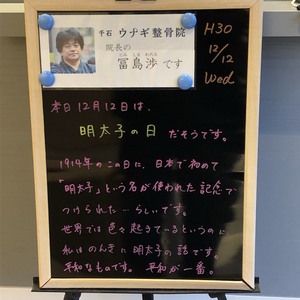 千石 ウナギ整骨院
院長の
とみ しま わたる
冨島渉です
H30
12/12
Wed
本日12月12日は、
明太子の日 だそうです。
1914年のこの日に、日本で初めて
「明太子」という名が使われた記念で
つけられた…らしいです。
世界では色々起きているというのに
私はのんきに明太子の話です。
平和なものです。平和が一番。